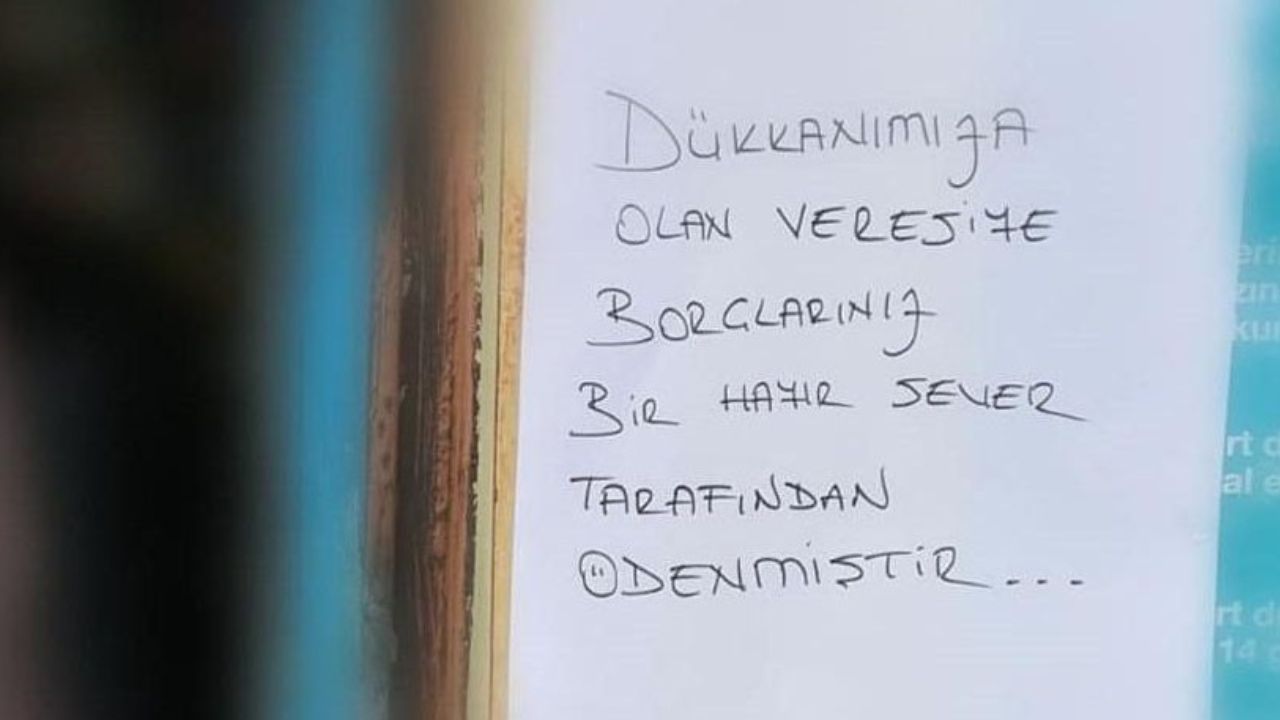 DÜKKANIMIZA
OLAN VERESİYE
BORÇLARINIZ
BİR HAYIR SEVER
TARAFINDAN
ÖDENMİŞTİR...
rt d
14